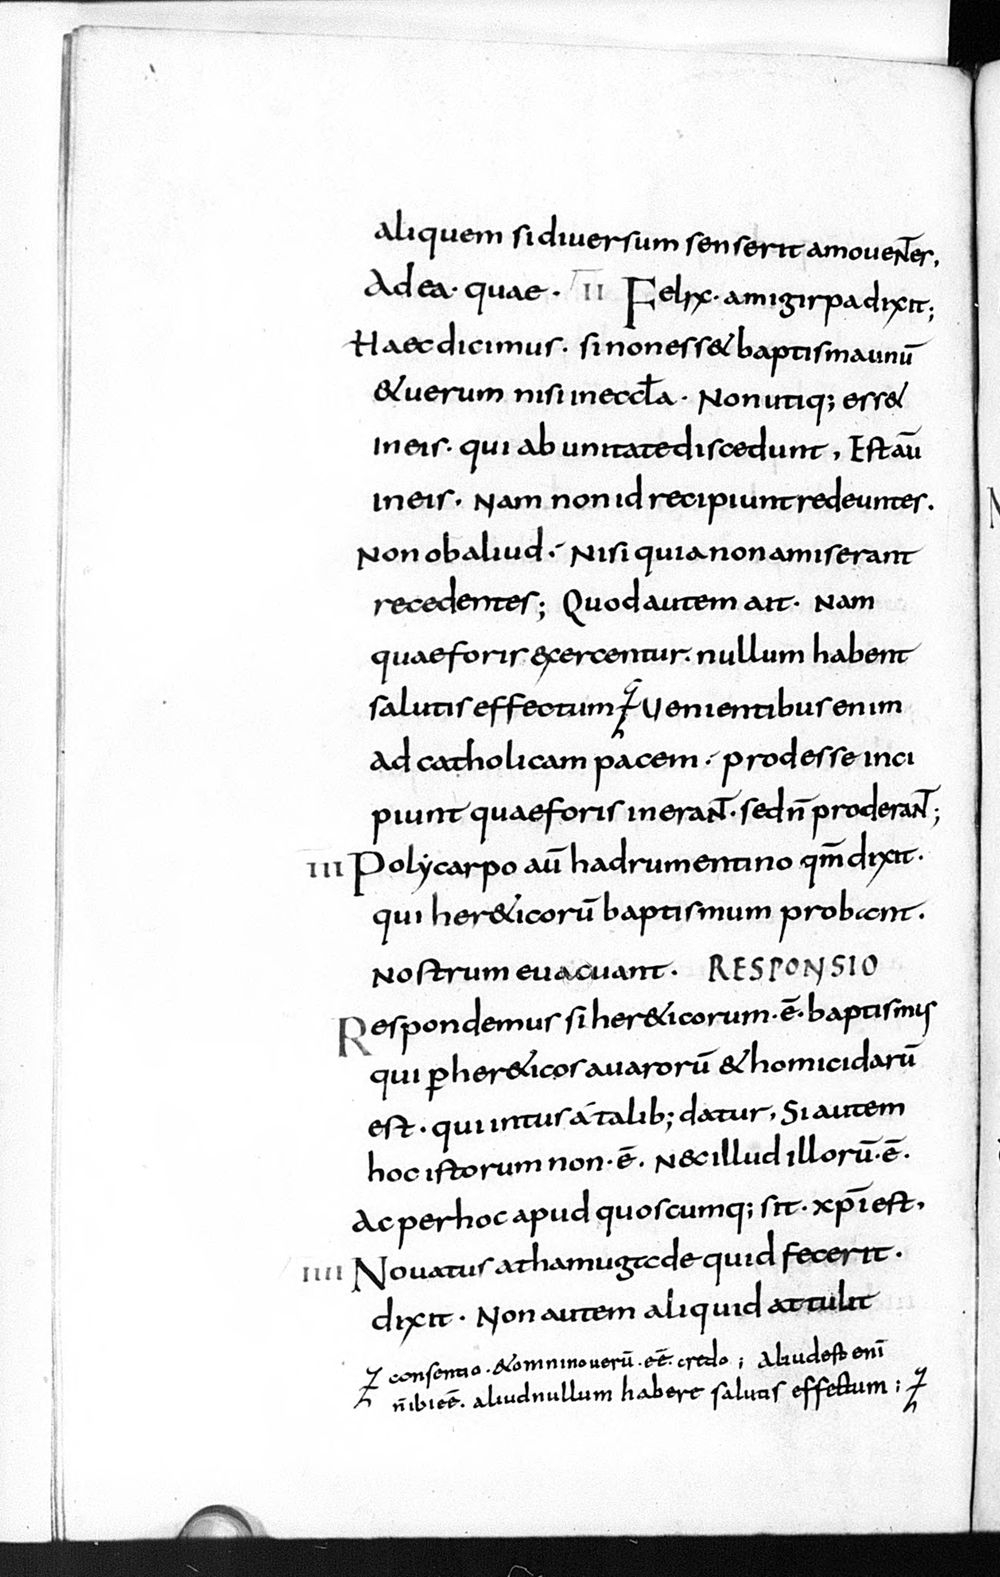 aliquem si diuersum senserit amouēNer,
Ad ea· quae · II Felix· amigirpa dixit;
Haec dicimus· si non ess& baptisma unū
& uerum nisi in eccɫa · Non utiq; ess&
in eis· qui ab unitate discedunt, Est aū
in eis· Nam non id recipiunt redeuntes.
Non ob aliud· Nisi quia non amiserant
recedentes; Quod autem ait· Nam
quae foris exercentur· nullum habent
salutis effectum Uenientibus enim
ad catholicam pacem · prodesse inci
piunt quae foris inerant· sed n̄ proderant;
III Polẏcarpo aū hadrumentino qm̄ dixit·
qui her&icorū baptismum probant.
Nostrum euacuant · RESPONSIO
Respondemus si her&icorum·ē· baptismus
qui ꝑ her&icos auarorū & homicidarū
est· qui intus á talib; datur, Si autem
hoc istorum non·ē· Nec illud illorū·ē·
Ac per hoc apud quoscumq; sit· xp̄i est,
IIII Nouatus athamugade quid fecerit ·
dixit · Non autem aliquid attulit
consentio· & omnino uerū· eē· credo; Aliud est enī
n̄ ibi eē· aliud nullum habere salutis effectum;